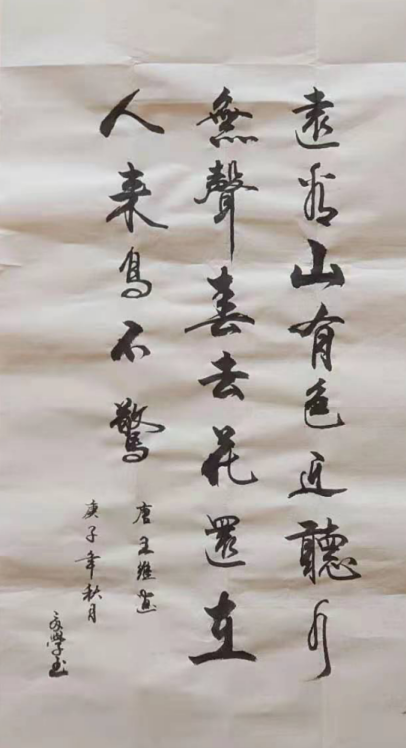 遠看山有色近聽水
無聲春去花還在
人来鳥不驚
唐王維畫
庚子年秋月